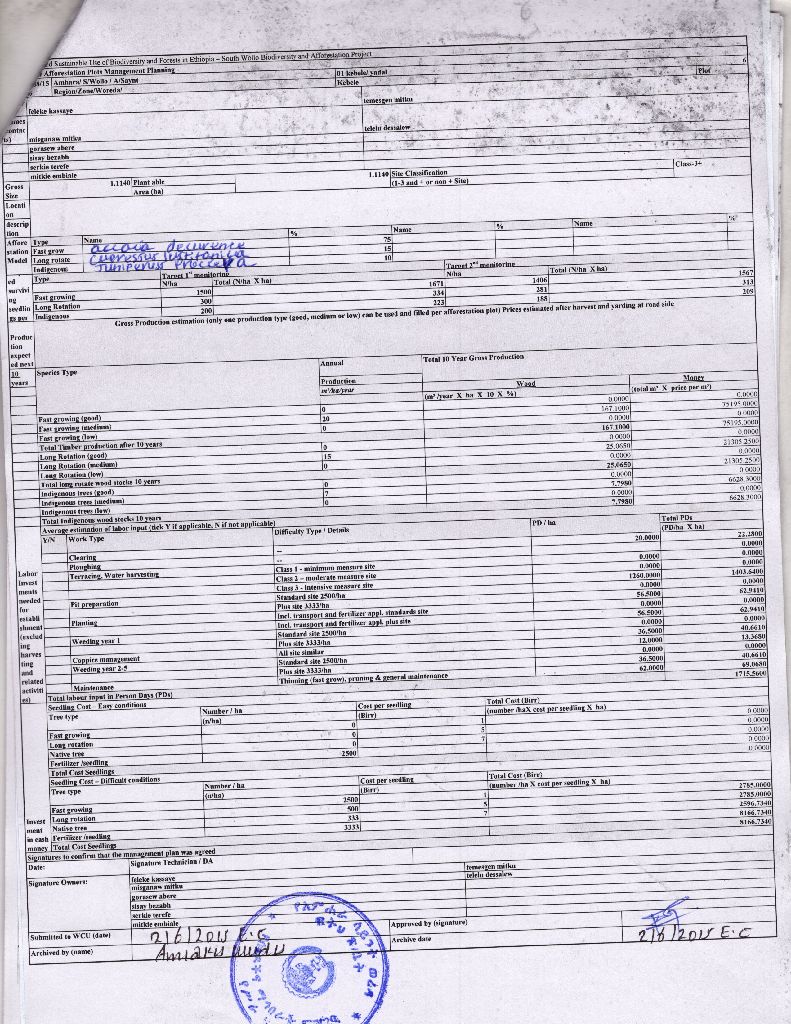 ed Sustainable Use of Biodiversity and Forests in Ethiopia – South Wollo Biodiversity and Afforestation Project
Afforestation Plots Management Planning 6
Amhara/ S/Wollo / A/Saynt 01 kebele/ yadal Plot
Region/Zone/Woreda/ Kebele
feleke kassaye temesgen mitku
misganaw mitku telelu dessalew
gorasew abere
sisay bezabh
serkie terefe
mitkie embiale
Gross Size 1.1140 Plant able Area (ha) 1.1140 Site Classification (1-3 and + or non + Site) Class-3+
Location description
Afforestation Model Type Name % Name % Name %
Fast grow accacia decurence 75
Long rotate cuperessur lustitanica 15
Indigenous Juniperus Procceya 10
Type Target 1st monitoring Target 2nd monitoring
N/ha Total (N/ha X ha) N/ha Total (N/ha X ha)
Fast growing 1500 1671 1406 1567
Long Rotation 300 334 281 313
Indigenous 200 223 188 209
Gross Production estimation (only one production type (good, medium or low) can be used and filled per afforestation plot) Prices estimated after harvest and yarding at road side
Production expected next 10 years
Species Type Annual Total 10 Year Gross Production
Production Wood Money
m³/ha/year (m³ /year X ha X 10 X %) (total m³ X price per m³)
Fast growing (good) 0 0.0000 0.0000
Fast growing (medium) 20 167.1000 75195.0000
Fast growing (low) 0 0.0000 0.0000
Total Timber production after 10 years 167.1000 75195.0000
Long Rotation (good) 0 0.0000 0.0000
Long Rotation (medium) 15 25.0650 21305.2500
Long Rotation (low) 0 0.0000 0.0000
Total long rotate wood stocks 10 years 25.0650 21305.2500
Indigenous trees (good) 0 0.0000 0.0000
Indigenous trees (medium) 7 7.7980 6628.3000
Indigenous trees (low) 0 0.0000 0.0000
Total Indigenous wood stocks 10 years 7.7980 6628.3000
Average estimation of labor input (tick Y if applicable, N if not applicable)
Y/N Work Type Difficulty Type / Details PD / ha Total PDs (PD/ha X ha)
Clearing -- 20.0000 22.2800
Ploughing -- 0.0000
Terracing, Water harvesting Class 1 - minimum measure site 0.0000 0.0000
Class 2 – moderate measure site 0.0000 0.0000
Class 3 - intensive measure site 1260.0000 1403.6400
Pit preparation Standard site 2500/ha 0.0000 0.0000
Plus site 3333/ha 56.5000 62.9410
Planting Incl. transport and fertilizer appl. standards site 0.0000 0.0000
Incl. transport and fertilizer appl. plus site 56.5000 62.9410
Weeding year 1 Standard site 2500/ha 0.0000 0.0000
Plus site 3333/ha 36.5000 40.6610
Coppice management All site similar 12.0000 13.3680
Weeding year 2-5 Standard site 2500/ha 0.0000 0.0000
Plus site 3333/ha 36.5000 40.6610
Maintenance Thinning (fast grow), pruning & general maintenance 62.0000 69.0680
Total labour input in Person Days (PDs) 1715.5600
Labor investments needed for establishment (excluding harvesting and related activities)
Seedling Cost – Easy conditions
Tree type Number / ha (n/ha) Cost per seedling (Birr) Total Cost (Birr) (number /haX cost per seedling X ha)
Fast growing 0 1 0.0000
Long rotation 0 5 0.0000
Native tree 0 7 0.0000
Fertilizer /seedling 2500
Total Cost Seedlings 0.0000
Seedling Cost – Difficult conditions
Tree type Number / ha (n/ha) Cost per seedling (Birr) Total Cost (Birr) (number /ha X cost per seedling X ha)
Fast growing 2500 1 2785.0000
Long rotation 500 5 2785.0000
Native tree 333 7 2596.7340
Fertilizer /seedling 3333 8166.7340
Total Cost Seedlings 8166.7340
Investment in cash money
Signatures to confirm that the management plan was agreed
Date: Signature Technician / DA
Signature Owners: feleke kassaye temesgen mitku
misganaw mitku telelu dessalew
gorasew abere
sisay bezabh
serkie terefe
mitkie embiale
Submitted to WCU (date) 2/6/2015 E.C Approved by (signature)
Archived by (name) Archive date 2/6/2015 E.C